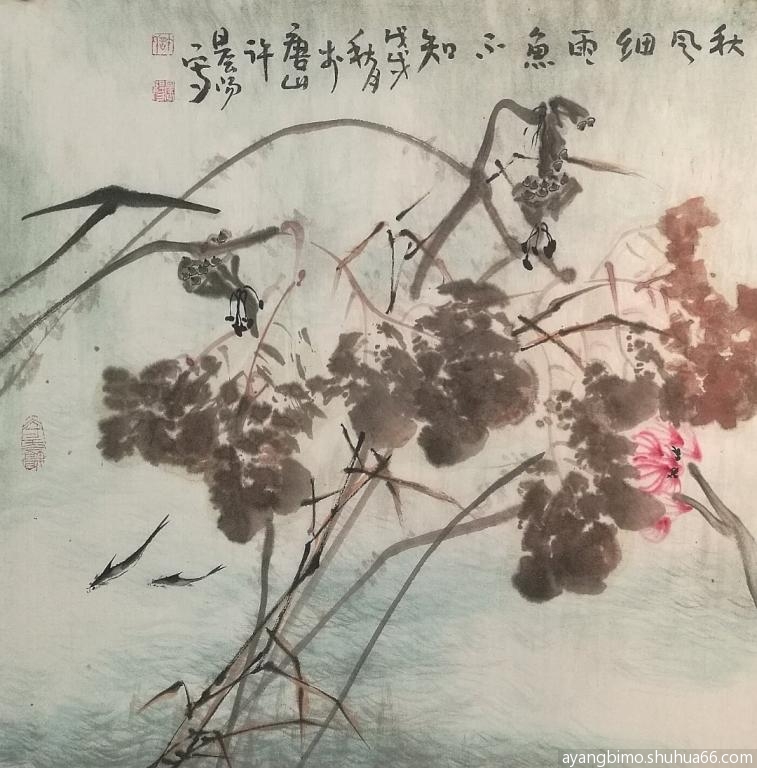 秋风细雨鱼不知
戊戌
秋月
于
唐山
许
晨阳
写
ayangbimo.shuhua66.com